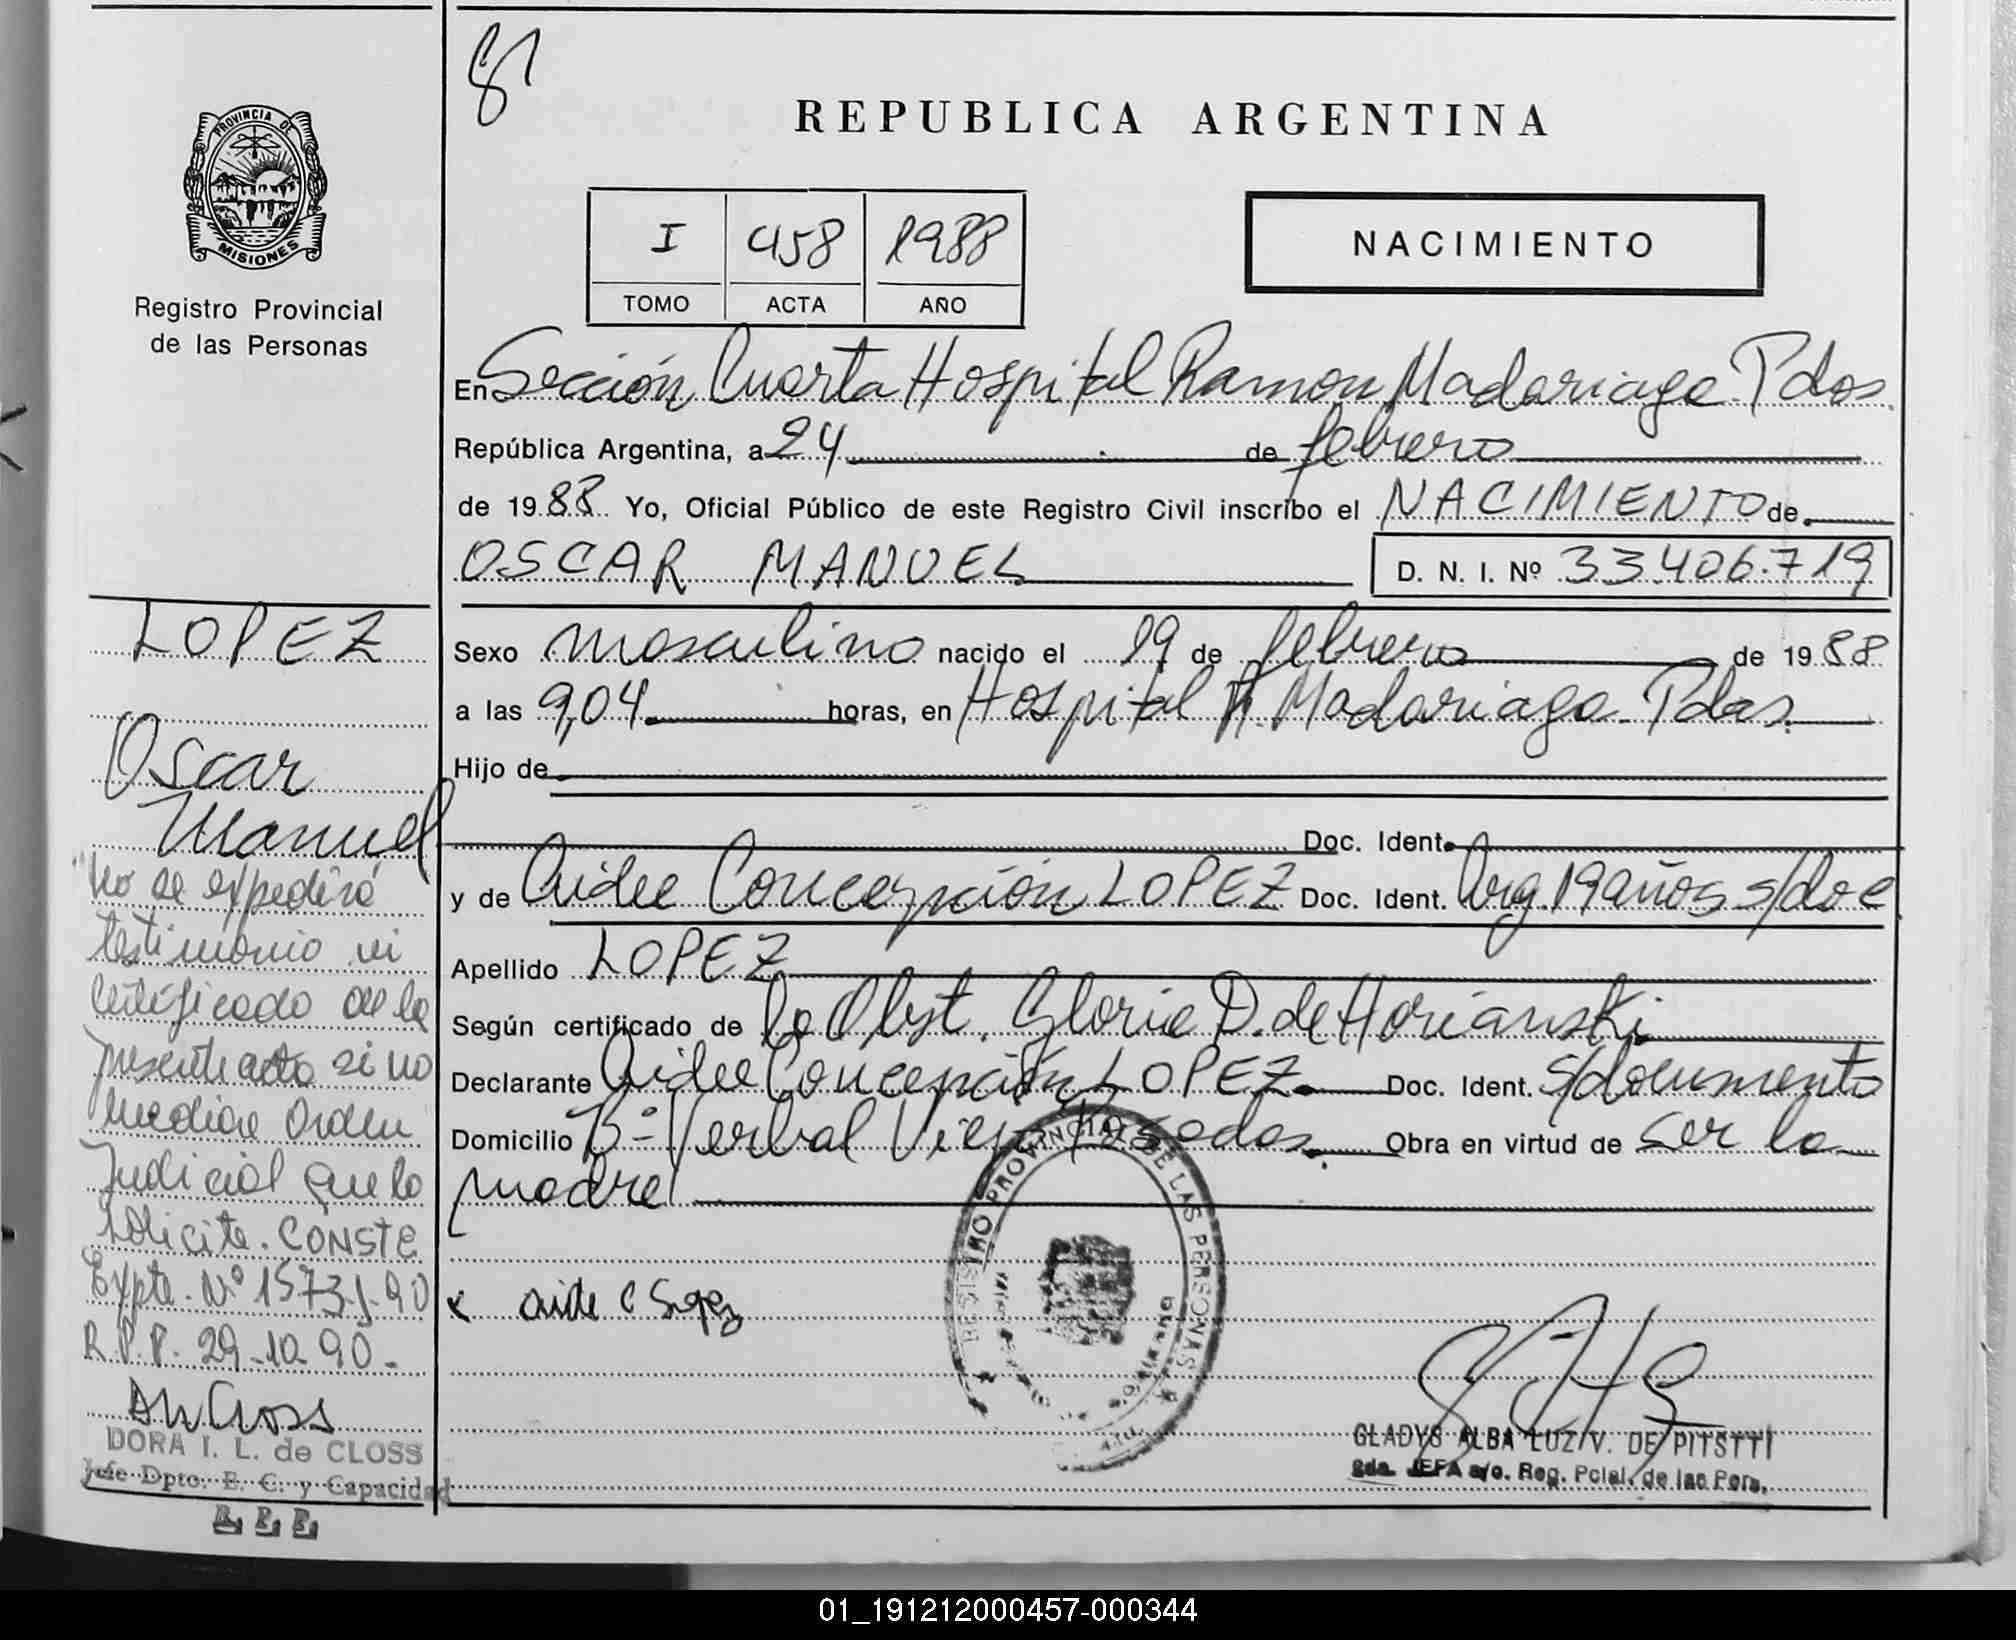 81
REPUBLICA ARGENTINA
PROVINCIA DE
MISIONES
Registro Provincial
de las Personas
I 458 1988
TOMO ACTA AÑO
NACIMIENTO
En Sección Cuarta Hospital Ramon Madariaga Pdas.
República Argentina, a 24 de febrero
de 1988 Yo, Oficial Público de este Registro Civil inscribo el NACIMIENTO de
OSCAR MANUEL D. N. I. Nº 33.406.719
Sexo masculino nacido el 19 de febrero de 1988
a las 9,04 horas, en Hospital R. Madariaga Pdas.
Hijo de
Doc. Ident.
y de Aidee Concepción LOPEZ Doc. Ident. Arg. 19 años s/doc
Apellido LOPEZ
Según certificado de la Obst. Gloria D. de Horianski
Declarante Aidee Concepción LOPEZ Doc. Ident. s/documento
Domicilio Bº Yerbal Viejo Posadas. Obra en virtud de ser la
madre
x aide C
REGISTRO PROVINCIAL DE LAS PERSONAS
GLADYS ALBA LUZ V. DE PITSTTI
2da. JEFA a/c. Reg. Pcial. de las Pers.
LOPEZ
Oscar
Manuel
"No se expedirá
testimonio ni
certificado de la
presente acta si no
mediae Orden
Judicial que lo
solicite. CONSTE
Expte. Nº 1573-J-90
R.P.P. 29-10-90-
DORA I. L. de CLOSS
Jefe Dpto. E. C. y Capacidad
R. P. P.
01_191212000457-000344